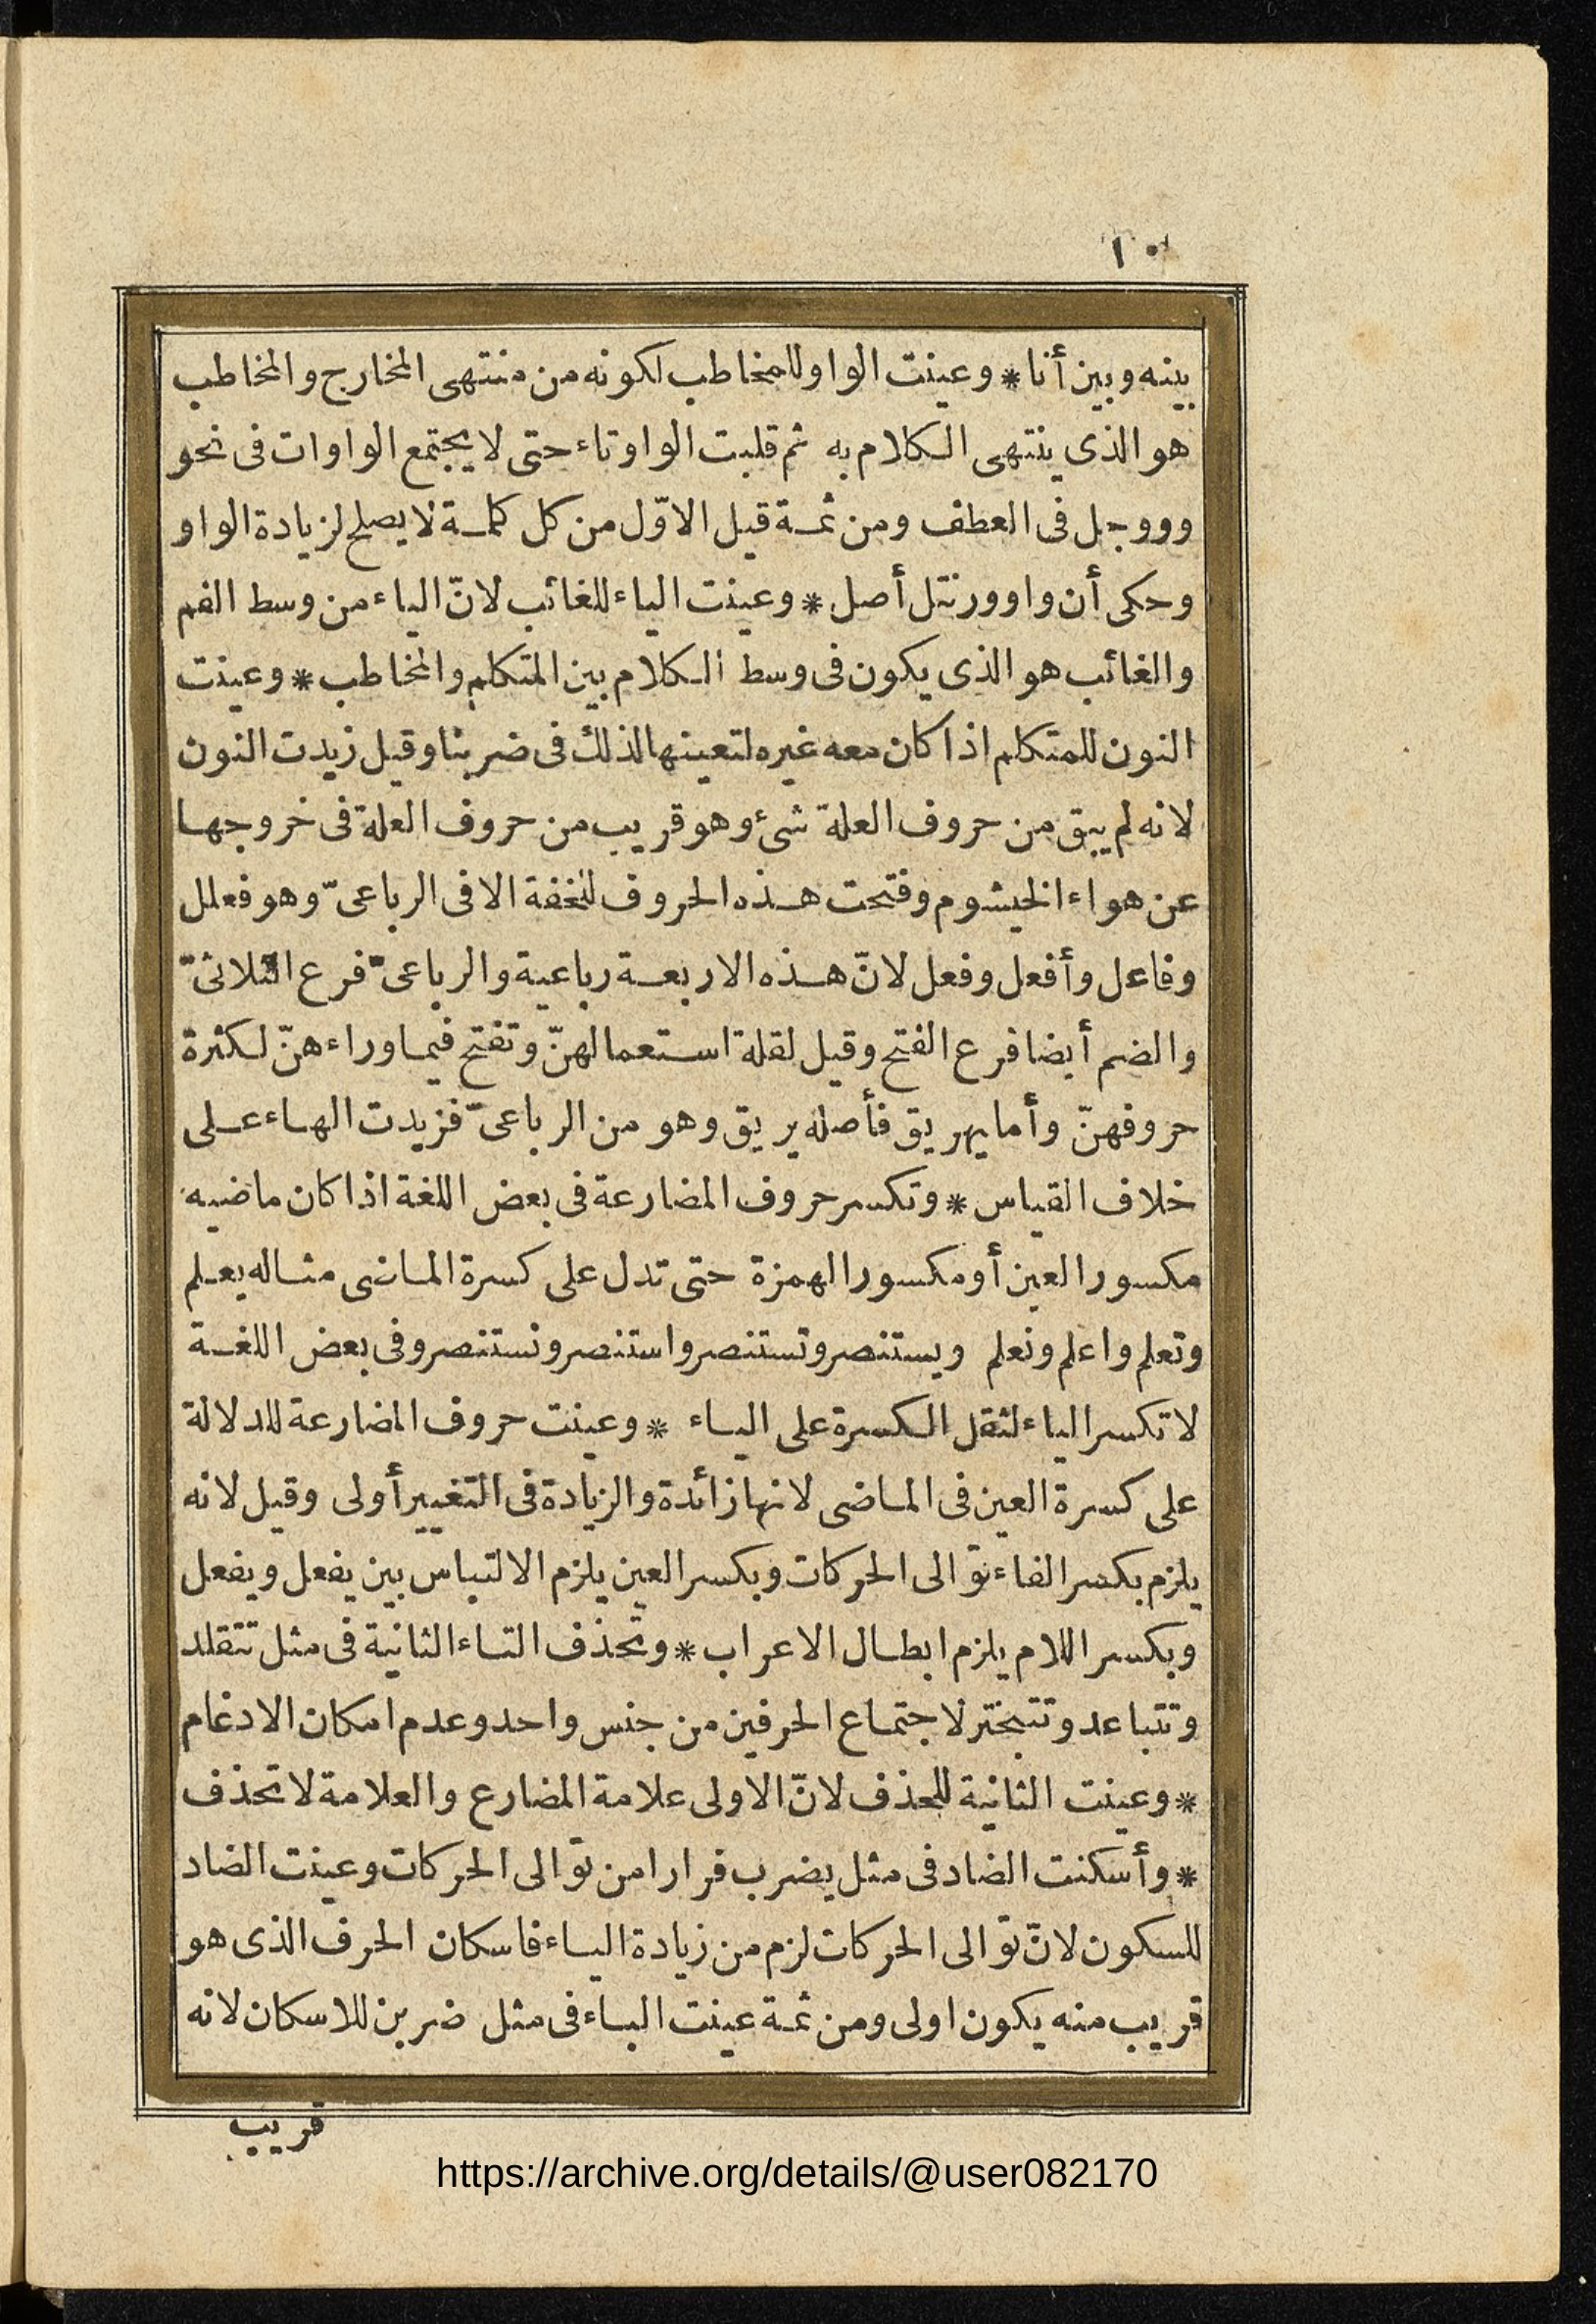 ١٠
بينه وبين أنا * وعينت الواو للمخاطب لكونه من منتهى المخارج والمخاطب
هو الذى ينتهى الكلام به ثم قلبت الواو تاء حتى لا يجتمع الواوات فى نحو
وووجل فى العطف ومن ثمـة قيل الاوّل من كل كلمـة لا يصلح لزيادة الواو
وحكى أن واو ورنتل أصل * وعينت الياء للغائب لانّ الياء من وسط الفم
والغائب هو الذى يكون فى وسط الكلام بين المتكلم والمخاطب * وعينت
النون للمتكلم اذا كان معه غيره لتعينها لذلك فى ضربنا وقيل زيدت النون
لانه لم يبق من حروف العلة شئ وهو قريب من حروف العلة فى خروجها
عن هواء الخيشوم وفتحت هـذه الحروف للخفة الا فى الرباعىّ وهو فعلل
وفاعل وأفعل وفعل لانّ هـذه الاربعـة رباعية والرباعىّ فرع الثلاثىّ
والضم أيضا فرع الفتح وقيل لقلة استعمالهنّ وتفتح فيما وراءهنّ لكثرة
حروفهنّ وأما يهريق فأصله يريق وهو من الرباعىّ فزيدت الهاء عـلى
خلاف القياس * وتكسر حروف المضارعة فى بعض اللغة اذا كان ماضيه
مكسور العين أو مكسور الهمزة حتى تدل على كسرة الماضى مثاله يعـلم
وتعلم واعلم ونعلم ويستنصر وتستنصر واستنصر ونستنصر وفى بعض اللغـة
لا تكسر الياء لثقل الكسرة على الياء * وعينت حروف المضارعة للدلالة
على كسرة العين فى الماضى لانها زائدة والزيادة فى التغيير أولى وقيل لانه
يلزم بكسر الفاء توالى الحركات وبكسر العين يلزم الالتباس بين يفعل ويفعل
وبكسر اللام يلزم ابطال الاعراب * وتحذف التاء الثانية فى مثل تتقلد
وتتباعد وتتبختر لاجتماع الحرفين من جنس واحد وعدم امكان الادغام
* وعينت الثانية للحذف لانّ الاولى علامة المضارع والعلامة لا تحذف
* وأسكنت الضاد فى مثل يضرب فرارا من توالى الحركات وعينت الضاد
للسكون لانّ توالى الحركات لزم من زيادة الياء فاسكان الحرف الذى هو
قريب منه يكون اولى ومن ثمـة عينت الباء فى مثل ضربن للاسكان لانه
قريب
https://archive.org/details/@user082170